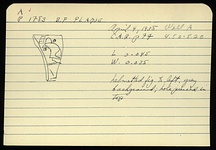 A
P 1753 R.F. PLAQUE
April 4, 1935 Well A
p. 74
L 0.045
W. 0.035
helmeted fig. to left, grey
background; hole pierced in
top